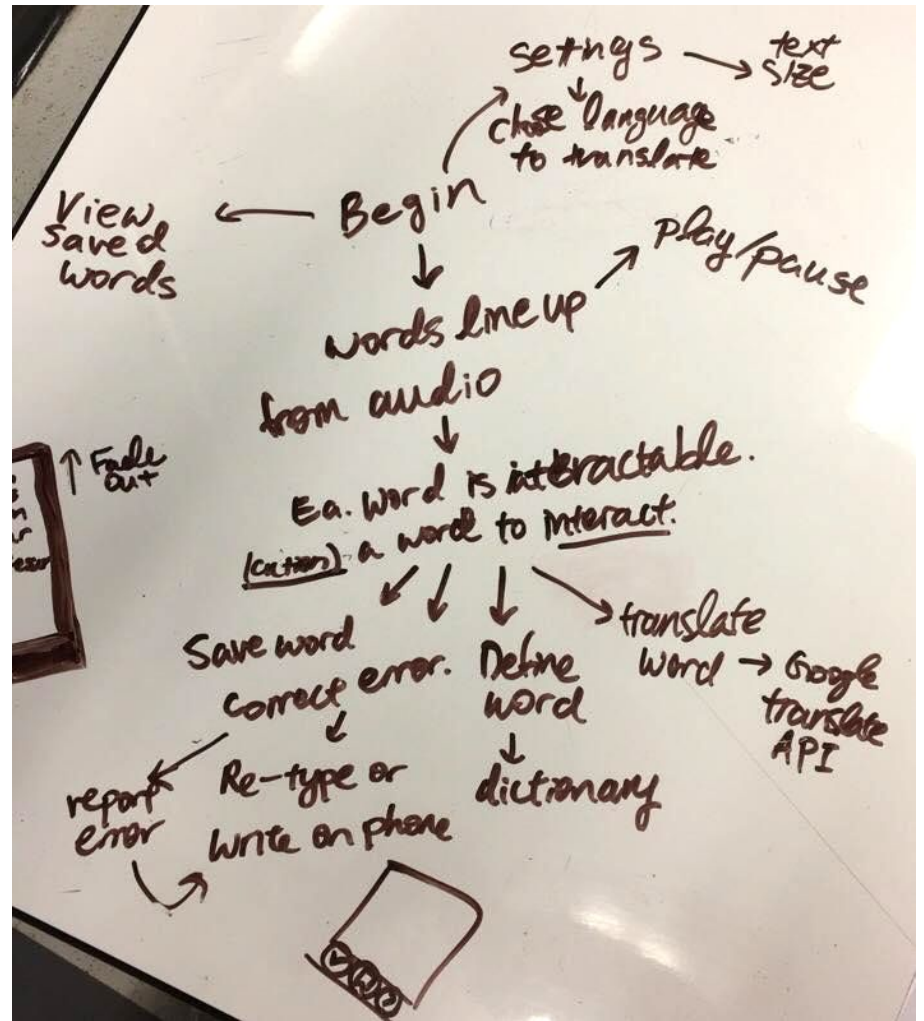 settings → text
size
choose language
to translate
Begin
View
saved
words
play/pause
words line up
from audio
Fade
out
Ea. word is interactable.
(action) a word to interact.
Save word
correct error.
Define
word
translate
word → Google
translate
API
dictionary
report
error
Re-type or
write on phone